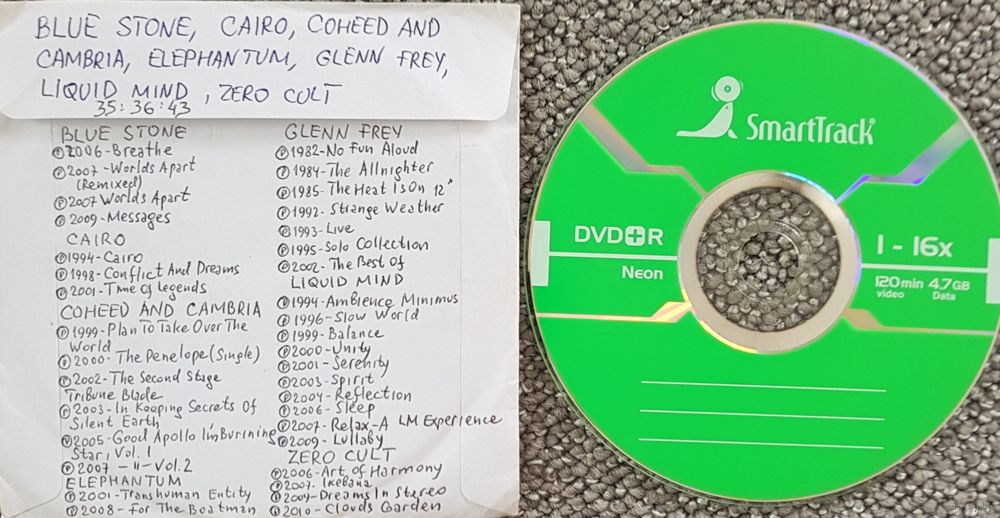 BLUE STONE, CAIRO, COHEED AND
CAMBRIA, ELEPHANTUM, GLENN FREY,
LIQUID MIND , ZERO CULT
35:36:43
BLUE STONE
℗2006-Breathe
℗2007-Worlds Apart
(Remixed)
℗2007 Worlds Apart
℗2009-Messages
CAIRO
℗1994-Cairo
℗1998-Conflict And Dreams
℗2001-Time of legends
COHEED AND CAMBRIA
℗1999-Plan To Take Over The
World
℗2000-The Penelope (Single)
℗2002-The Second Stage
Tribune Blade
℗2003-In Keeping Secrets Of
Silent Earth
℗2005-Good Apollo I'm Burning
Star, Vol. 1
℗2007 -"- Vol.2
ELEPHANTUM
℗2001-Transhuman Entity
℗2008-For The Boatman
GLENN FREY
℗1982-No Fun Aloud
℗1984-The Allnighter
℗1985-The Heat Is On 12"
℗1992-Strange Weather
℗1993-Live
℗1995-Solo Collection
℗2002-The Best Of
LIQUID MIND
℗1994-Ambience Minimus
℗1996-Slow World
℗1999-Balance
℗2000-Unity
℗2001-Serenity
℗2003-Spirit
℗2004-Reflection
℗2006-Sleep
℗2007-Relax-A LM Experience
℗2009-Lullaby
ZERO CULT
℗2006-Art of Harmony
℗2007. Ikebana
℗2009-Dreams In Stereo
℗2010-Clouds Garden
SmartTrack
DVD+R
Neon
1 - 16x
120min 4.7GB
video Data